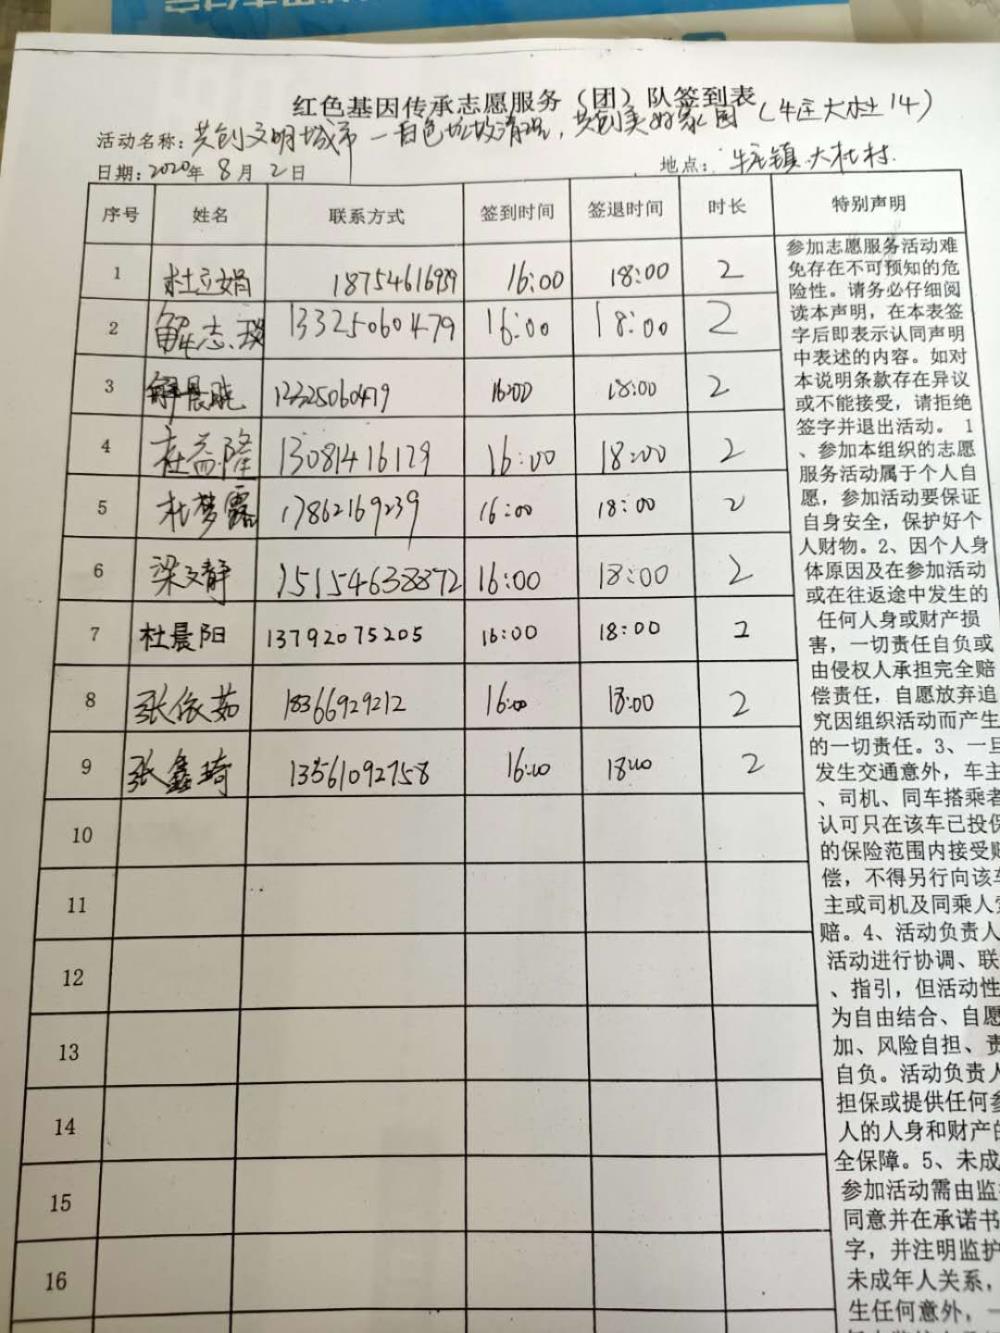 红色基因传承志愿服务（团）队签到表
活动名称：共创文明城市—白色垃圾清理，共创美好家园（牛庄大杜14）
日期：2020年8月2日 地点：牛庄镇大杜村
序号 姓名 联系方式 签到时间 签退时间 时长 特别声明
1 杜立娟 18754616939 16:00 18:00 2
2 解志 13325060479 16:00 18:00 2
3 解晨晓 13325060479 16:00 18:00 2
4 杜益隆 13081416129 16:00 18:00 2
5 杜梦露 17862169239 16:00 18:00 2
6 梁文静 15154638872 16:00 18:00 2
7 杜晨阳 13792075205 16:00 18:00 2
8 张依茹 18366929212 16:00 18:00 2
9 张鑫琦 13561092758 16:00 18:00 2
10
11
12
13
14
15
16
参加志愿服务活动难
免存在不可预知的危
险性。请务必仔细阅
读本声明，在本表签
字后即表示认同声明
中表述的内容。如对
本说明条款存在异议
或不能接受，请拒绝
签字并退出活动。 1
、参加本组织的志愿
服务活动属于个人自
愿，参加活动要保证
自身安全，保护好个
人财物。2、因个人身
体原因及在参加活动
或在往返途中发生的
任何人身或财产损
害，一切责任自负或
由侵权人承担完全赔
偿责任，自愿放弃追
究因组织活动而产生
的一切责任。3、一旦
发生交通意外，车主
、司机、同车搭乘者
认可只在该车已投保
的保险范围内接受赔
偿，不得另行向该车
主或司机及同乘人索
赔。4、活动负责人
活动进行协调、联
、指引，但活动性
为自由结合、自愿
加、风险自担、责
自负。活动负责人
担保或提供任何参
人的人身和财产的
全保障。5、未成
参加活动需由监
同意并在承诺书
字，并注明监护
未成年人关系，
生任何意外，一